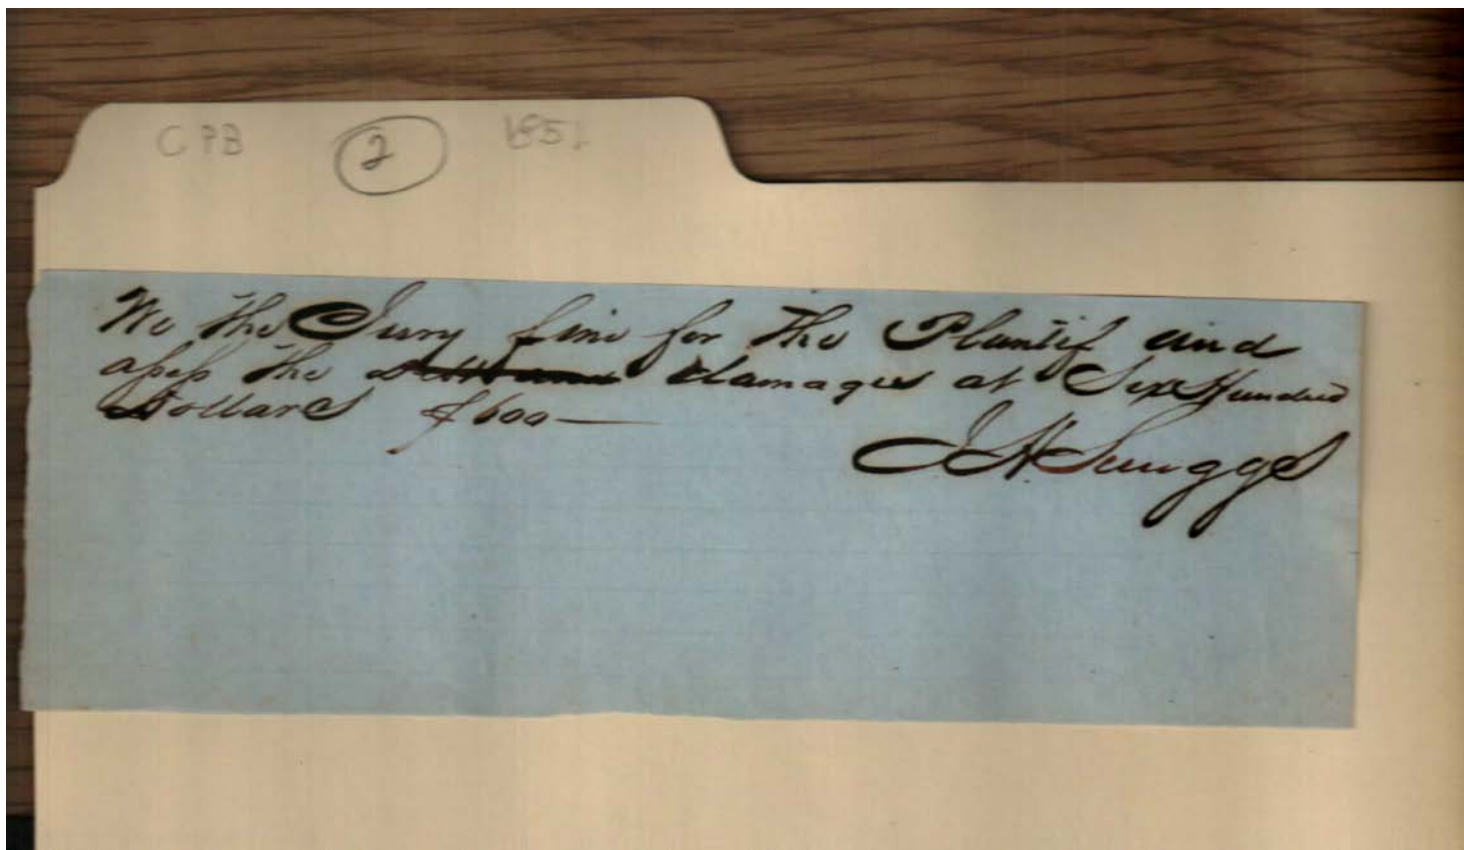 CPB 2 1851
We the Jury fine for the Plantif and
assess the damages at Six Hundred
Dollars $600—
J H Scruggs